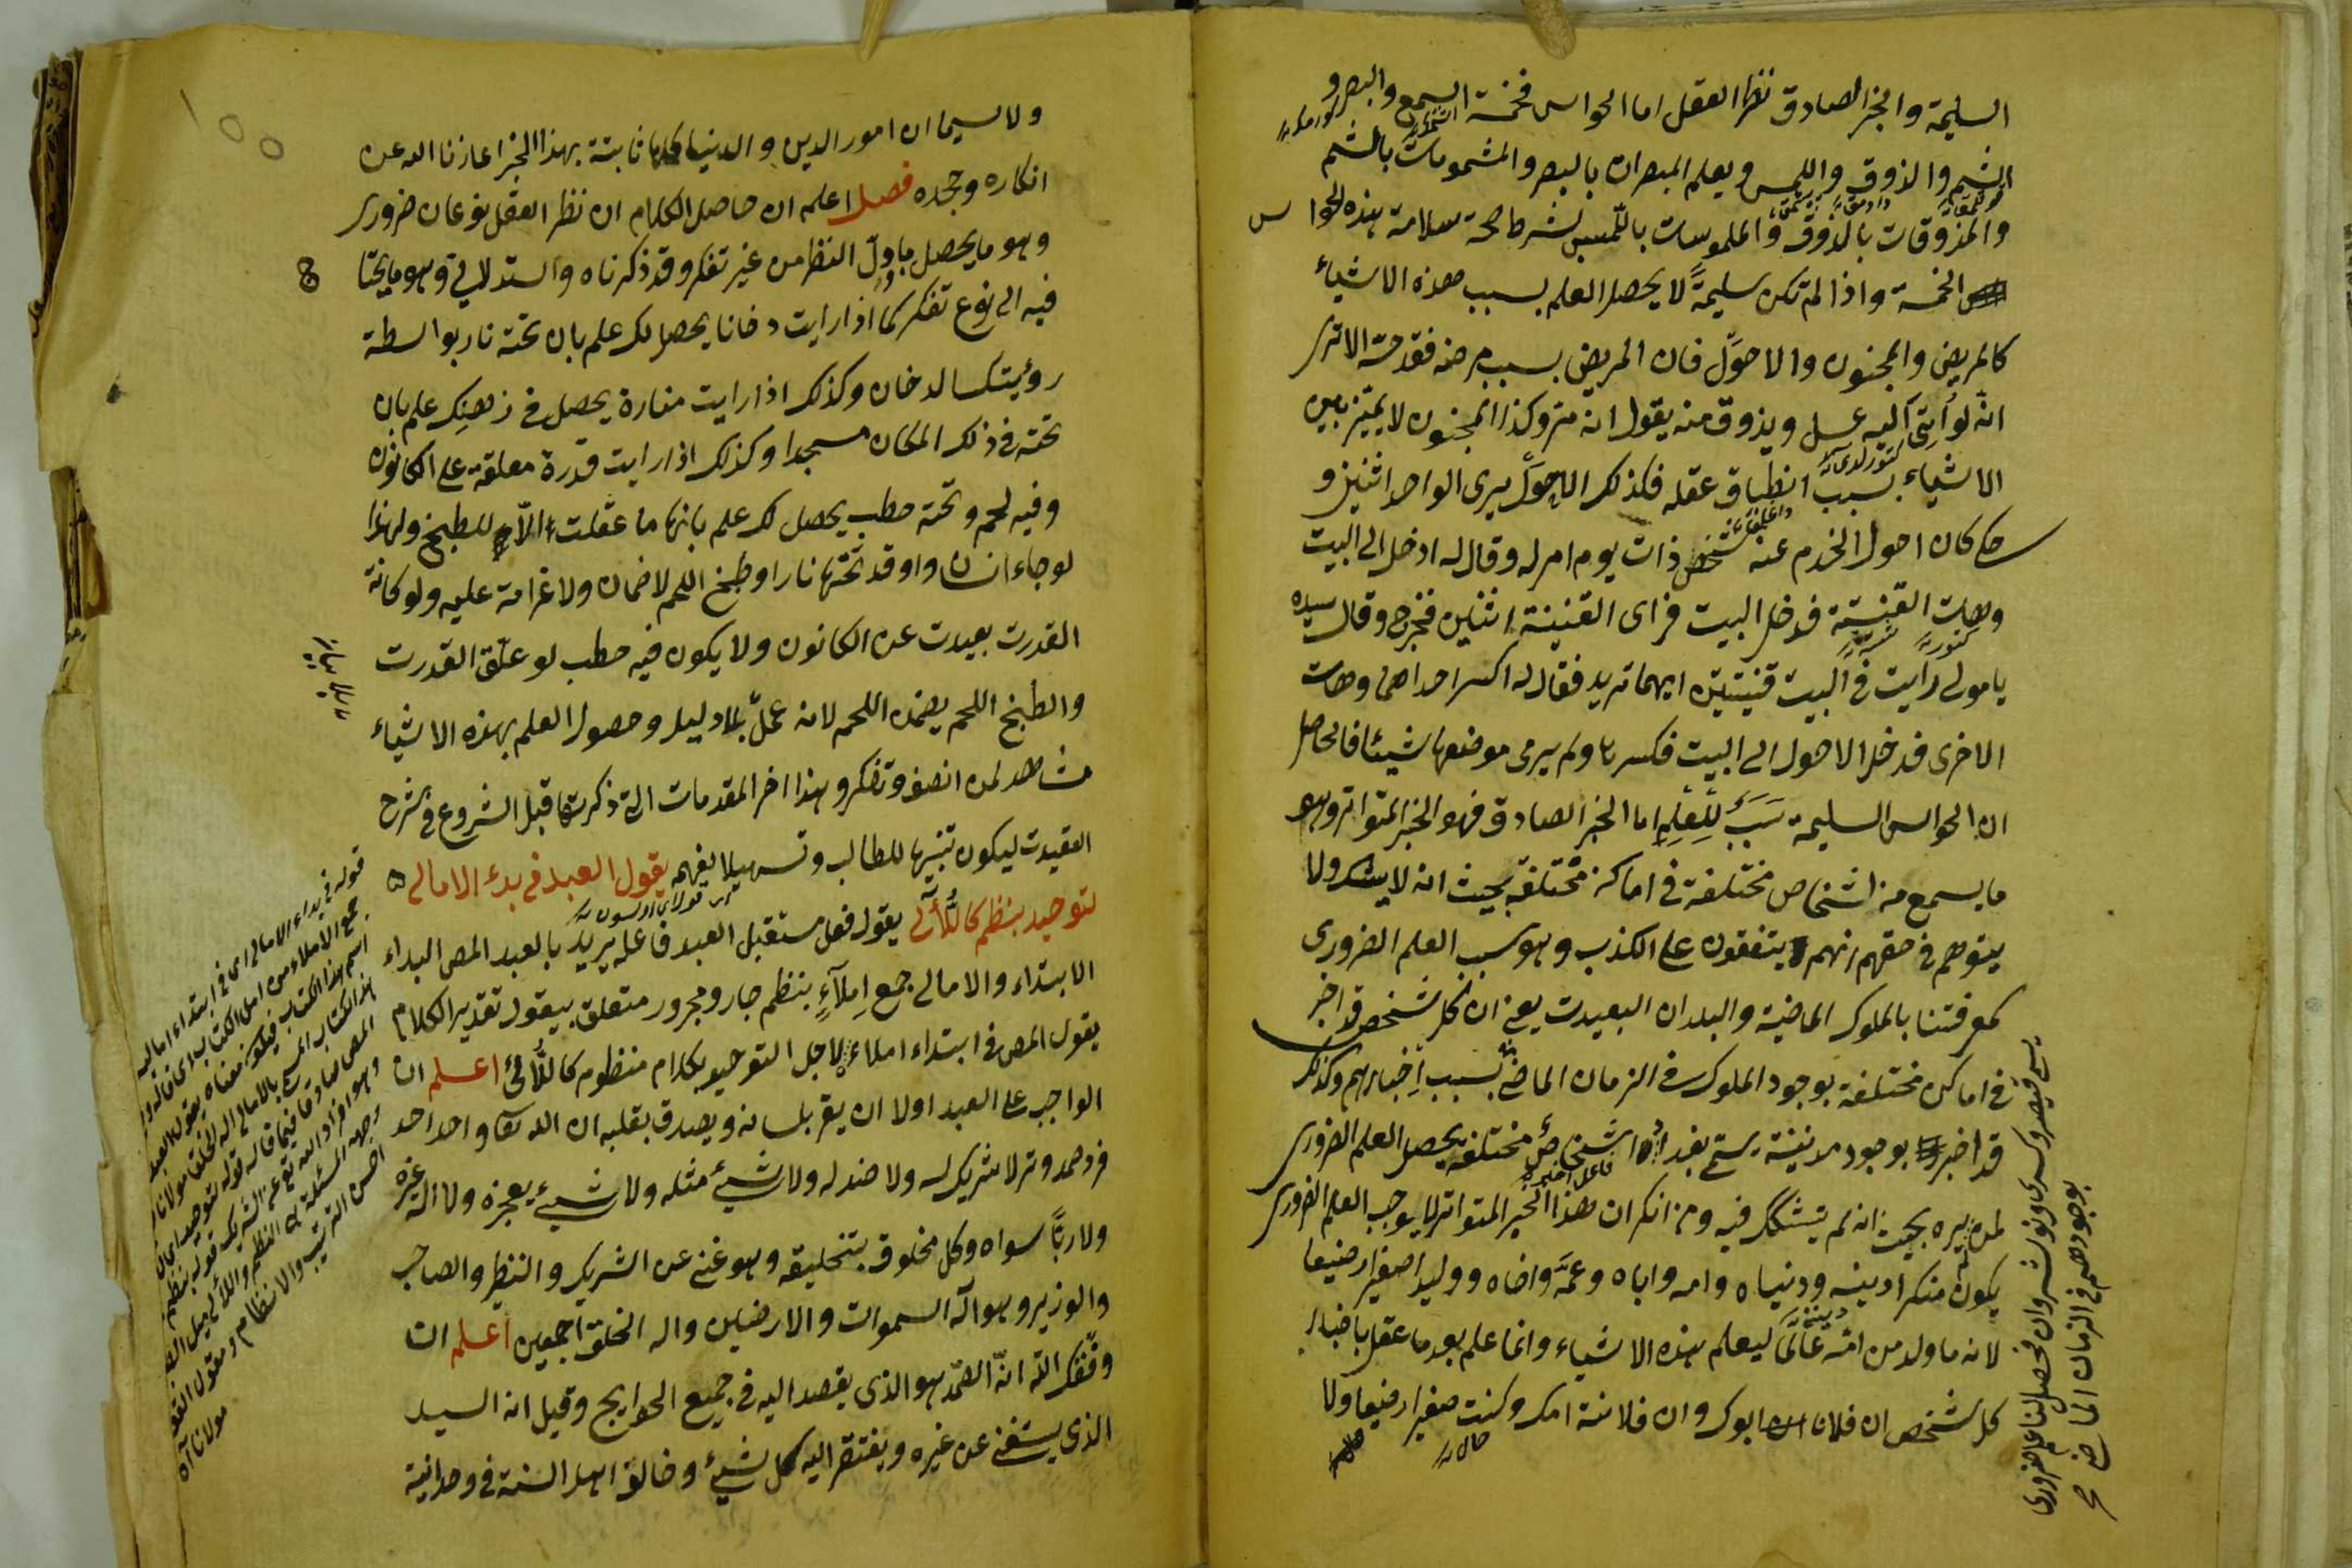 السليمة والخبر الصادق نظر العقل اما الحواس فخمسة السمع والبصر و
الشم والذوق واللمس ويعلم المبصرات بالبصر والمشمومات بالشم
والمذوقات بالذوق والملموسات باللمس بشرط صحة سلامة هذه الحواس
الخمسة واذا لم تكن سليمةً لا يحصل العلم بسبب هذه الاشياء
كالمريض والمجنون والاحوَل فان المريض بسبب مرضه فقد حسه الا ترى
انه لو اُتِى اليه عسل ويذوق منه يقول انه مرّ وكذا المجنون لا يميّز بين
الاشياء بسبب انطباق عقله فكذلك الاحوَل يرى الواحد اثنين و
حكى كان احول الخدم عند شخص ذات يوم امر له وقال له ادخل الى البيت
وهات القنينة فدخل البيت فراى القنينة اثنين فخرج وقال سيده
يا مولى رايت فى البيت قنينتين ايهما تريد فقال له اكسر احداهما وهات
الاخرى فدخل الاحول الى البيت فكسرها ولم يرى موضعها شيئا فالحاصل
ان الحواس السليمة سَبَبٌ لِلعلم اما الخبر الصادق فهو الخبر المتواتر وهو
ما يسمع من اشخاص مختلفة فى اماكن مختلفة بحيث انه لا يشك ولا
يتوهم فى حقهم انهم يتفقون على الكذب وهو سبب العلم الضرورى
كمعرفتنا بالملوك الماضية والبلدان البعيدت يعنى ان كل شخص قد اخبر
فى اماكن مختلفة بوجود الملوك فى الزمان الماضى بسبب اخبارهم وكذلك
قد اخبروا بوجود مدينة يسمى بغداد اشخاص مختلفة يحصل العلم الضرورى
لمن يره بحيث انه لم يتشكك فيه ومن انكر ان هذا الخبر المتواتر لا يوجب العلم الضرورى
يكون منكرا دينه ودنياه وامه واباه وعمّه واخاه ووليد اصغيرا رضيعا
لانه ما ولد من امّه عالمًا ليعلم هذه الاشياء وانما علم بعد ما عقل باخبار
كل شخص ان فلانا ابوك وان فلانة امك وكنت صغيرا رضيعا ولا
يسمى قيصر وكسرى ونوشروان فحصل لنا علم ضرورى
بوجودهم فى الزمان الماضى صح
ولا سيما ان امور الدين والدنيا كلها ثابتة بهذا الخبر اعاذنا الله عن
انكاره وجحده فصل اعلم ان حاصل الكلام ان نظر العقل نوعان ضرورى
وهو ما يحصل باول النظر من غير تفكر وقد ذكرناه واستدلالى وهو ما يحتا
فيه الى نوع تفكر كما اذا رايت دخانا يحصل لك علم بان تحته نار بواسطة
رؤيتك الدخان وكذلك اذا رايت منارة يحصل فى ذهنك علم بان
تحته فى ذلك المكان مسجدا وكذلك اذا رايت قدرة معلقة على الكانون
وفيه لحم وتحته حطب يحصل لك علم بانها ما عقلت الا للطبخ ولهذا
لو جاء انسان واوقد تحتها نارا وطبخ اللحم لا ضمان ولا غرامة عليه ولو كانة
القدرت بعيدت عن الكانون ولا يكون فيه حطب لو علّق القدرت
والطبخ اللحم يضمن اللحم لانه عمل بلا دليل وحصول العلم بهذه الاشياء
مشاهد لمن انصف وتفكر وهذا اخر المقدمات التى ذكرتها قبل الشروع فى شرح
العقيدت ليكون تنبيها للطالب وتسهيلا لفهمه يقول العبد فى بدء الامالى
لتوحيد بنظم كاللآلى يقول فعل مستقبل العبد فاعله يريد بالعبد المص البداء
الابتداء والامالى جمع اِملآءٍ بنظم جار ومجرور متعلق بيقول تقدير الكلام
يقول المص فى ابتداء املاء لاجل التوحيد بكلام منظوم كاللآلى اعلم ان
الواجب على العبد اولا ان يقر بلسانه ويصدق بقلبه ان الله تعا واحد احد
فرد صمد وتر لا شريك له ولا ضد له ولا شيئ مثله ولا شيئ يعجزه ولا اله غيره
ولا ربًّا سواه وكل مخلوق بتخليقه وهو غنى عن الشريك والنظير والصاحب
والوزير وهو اله السموات والارضين واله الخلق اجمعين اعلم ان
وفّقك الله انّ الصّمد هو الذى يقصد اليه فى جميع الحوايج وقيل انه السيد
الذى يستغنى عن غيره ويفتقر اليه كل شيئ وخالق اهل السنة فى وحدانية
قوله فى بداء الامالى اى فى ابتداء اماليه
جمع الاملاء من املى الكتاب اى قاله
اسم هذا الكتاب فيكون معناه يقول العبد